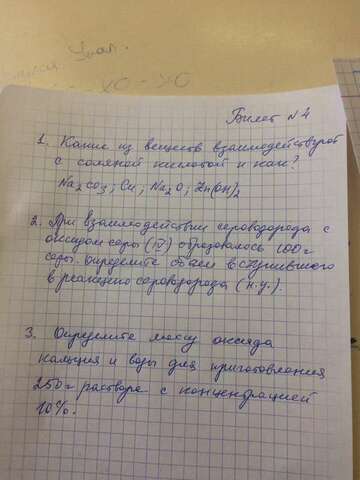 Билет №4
1. Какие из веществ взаимодействуют
с соляной кислотой и как?
Na2CO3; Cu; Na2O; Zn(OH)2
2. При взаимодействии сероводорода с
оксидом серы (IV) образовалось 100г
серы. Определите объём вступившего
в реакцию сероводорода (н.у.).
3. Определите массу оксида
кальция и воды для приготовления
250г раствора с концентрацией
10%.